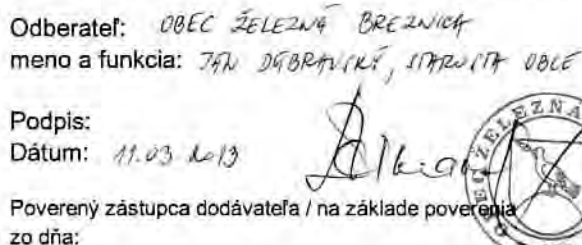 Odberateľ: OBEC ŽELEZNÁ BREZNICA
meno a funkcia: JÁN DÚBRAVSKÝ, STAROSTA OBCE
Podpis:
Dátum: 11.03.2013
OBEC ŽELEZNÁ
Poverený zástupca dodávateľa / na základe poverenia
zo dňa: